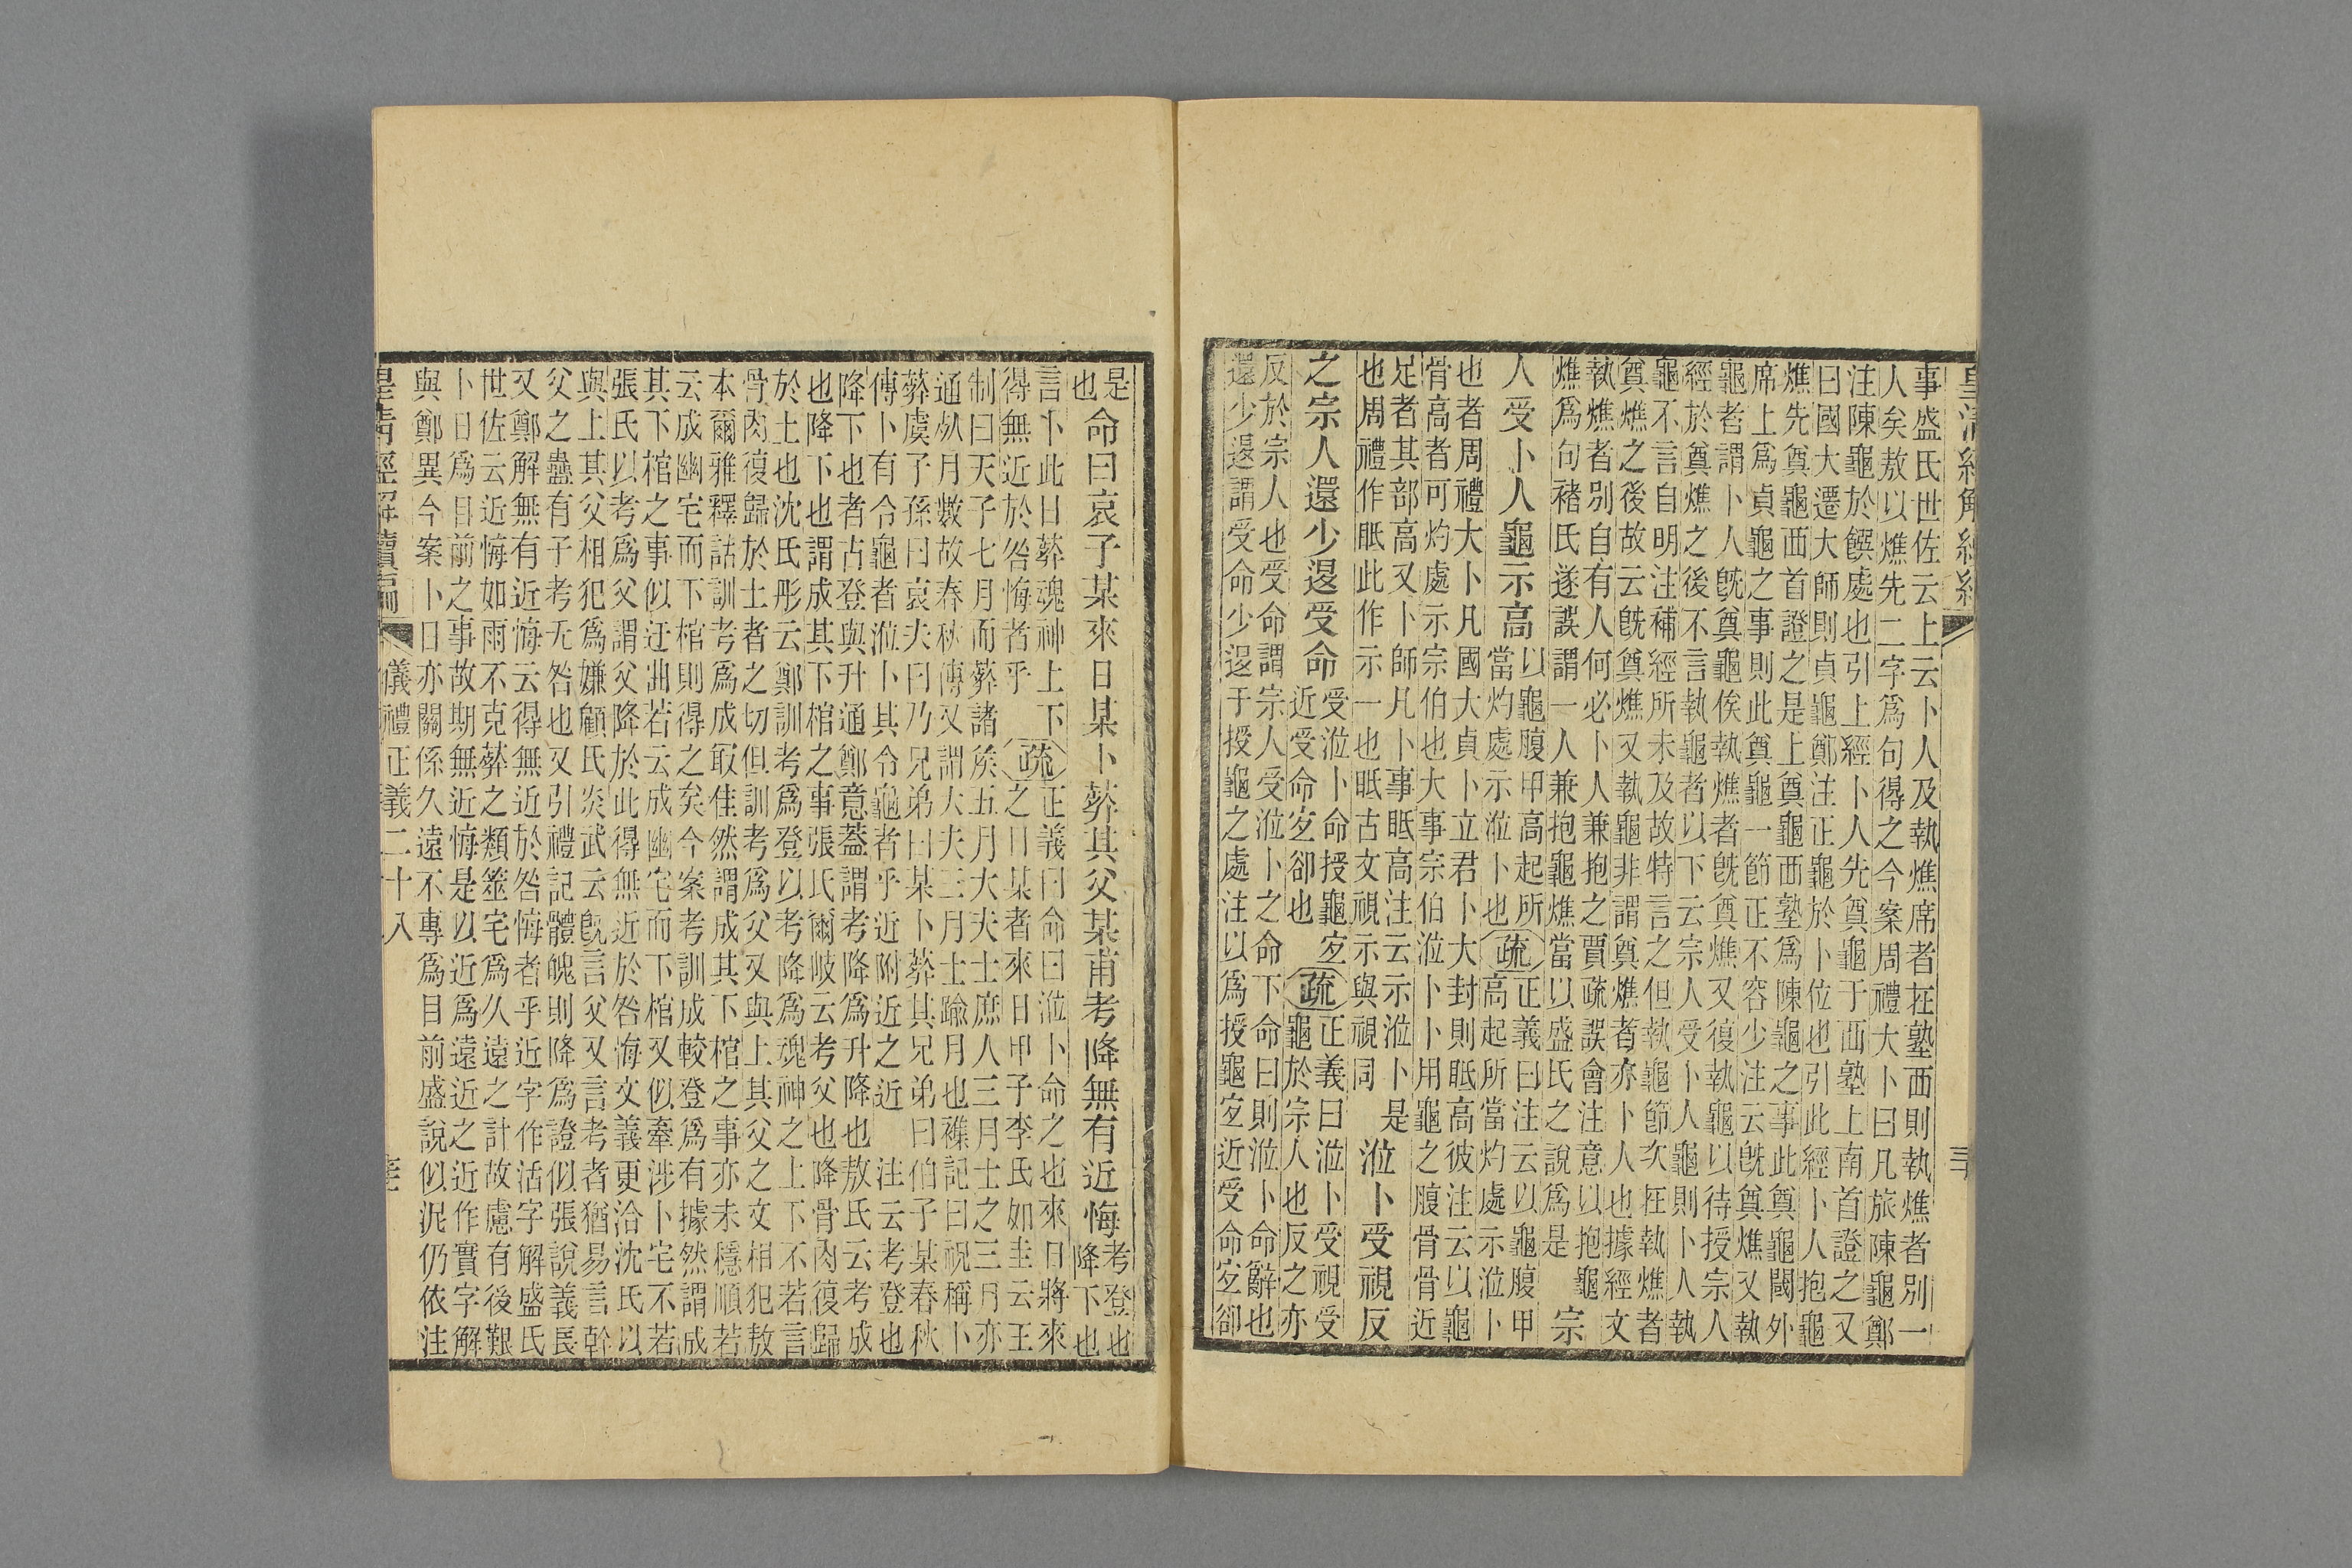 皇清經解續編
三十
事盛氏世佐云上云卜人及執燋席者在塾西則執燋者別一
人矣敖以燋先二字爲句得之今案周禮大卜曰凡旅陳龜鄭
注陳龜於饌處也引上經卜人先奠龜于西塾上南首證之又
曰國大遷大師則貞龜鄭注正龜於卜位也引此經卜人抱龜
燋先奠龜西首證之是上奠龜西塾爲陳龜之事此奠龜閾外
席上爲貞龜之事則此奠龜一節正不容少注云旣奠燋又執
龜者謂卜人旣奠龜俟執燋者旣奠燋又復執龜以待授宗人
經於奠燋之後不言執龜者以下云宗人受卜人龜則卜人執
龜不言自明注補經所未及故特言之但執龜節次在執燋者
奠燋之後故云旣奠燋又執龜非謂奠燋者亦卜人也據經文
執燋者別自有人何必卜人兼抱之賈疏誤會注意以抱龜
燋爲句褚氏遂誤謂一人兼抱龜燋當以盛氏之說爲是
宗
人受卜人龜示高
以龜腹甲高起所
當灼處示涖卜也
疏
正義曰注云以龜腹甲
高起所當灼處示涖卜
也者周禮大卜凡國大貞卜立君卜大封則眡高彼注云以龜
骨高者可灼處示宗伯也大事宗伯涖卜卜用龜之腹骨骨近
足者其部高又卜師凡卜事眡高注云示涖卜 是
也周禮作眡此作示一也眡古文視示與視同
涖卜受視反
之宗人還少退受命
受涖卜命授龜宜
近受命宜卻也
疏
正義曰涖卜受視受
龜於宗人也反之亦
反於宗人也受命謂宗人受涖卜之命下命曰則涖卜命辭也
還少退謂受命少退于授龜之處注以爲授龜宜近受命宜卻
是
也
命曰哀子某來日某卜葬其父某甫考降無有近悔
考登也
降下也
言卜此日葬魂神上下
得無近於咎悔者乎
疏
正義曰命曰涖卜命之也來日將來
之日某者來日甲子李氏如圭云王
制曰天子七月而葬諸侯五月大夫士庶人三月士之三月亦
通死月數故春秋傳又謂大夫三月士踰月也襍記曰祝稱卜
葬虞子孫曰哀夫曰乃兄弟曰某卜葬其兄弟曰伯子某春秋
傳卜有令龜者涖卜其令龜者乎近附近之近 注云考登也
降下也者古登與升通鄭意葢謂考降爲升降也敖氏云考成
也降下也謂成其下棺之事張氏爾岐云考父也降骨肉復歸
於土也沈氏彤云鄭訓考爲登以考降爲魂神之上下不若言
骨肉復歸於土者之切但訓考爲父又與上其父之文相犯敖
本爾雅釋詁訓考爲成取佳然謂成其下棺之事亦未穩順若
云成幽宅而下棺則得之矣今案考訓成較登爲有據然謂成
其下棺之事似迂曲若云成幽宅而下棺又似牽涉卜宅不若
張氏以考爲父謂父降於此得無近於咎悔文義更洽沈氏以
與上其父相犯爲嫌顧氏炎武云旣言父又言考者猶易言幹
父之蠱有子考无咎也又引禮記體魄則降爲證似張說義長
又鄭解無有近悔云得無近於咎悔者乎近字作活字解盛氏
世佐云近悔如雨不克葬之類筮宅爲久遠之計故慮有後艱
卜日爲目前之事故期無近悔是以近爲遠近之近作實字解
與鄭異今案卜日亦關係久遠不專爲目前盛說似泥仍依注
皇清經解續編
儀禮正義二十八